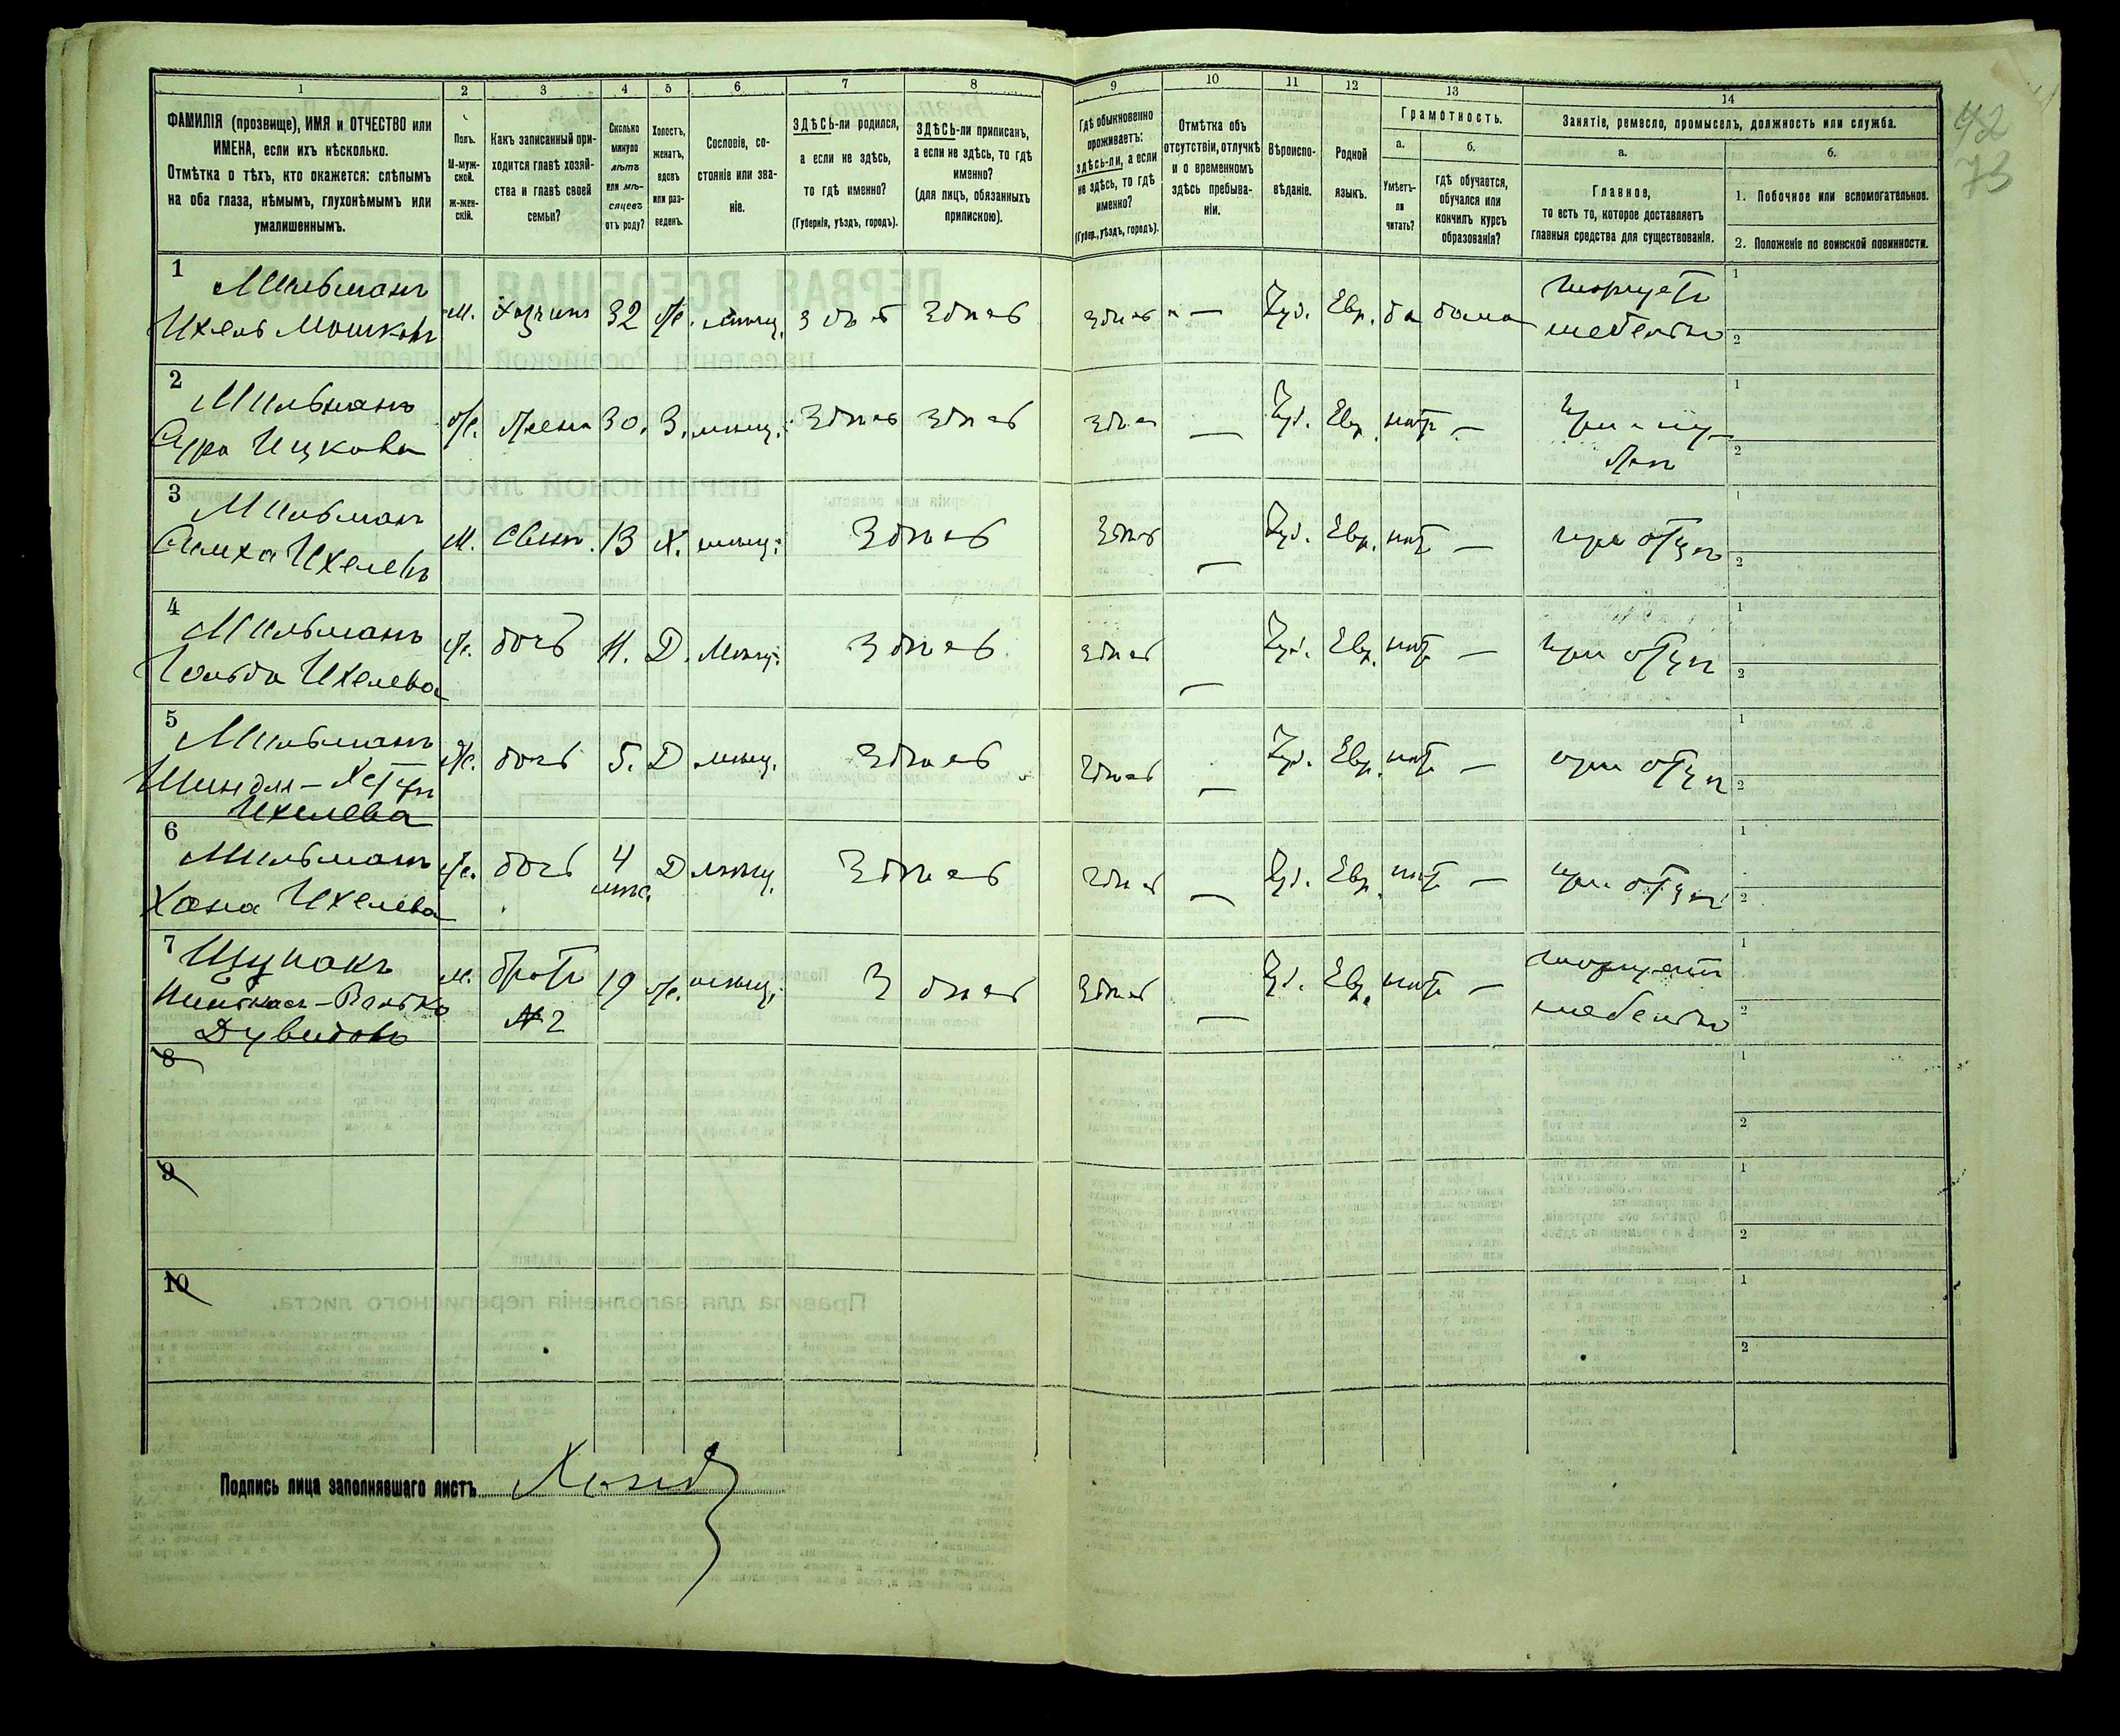 42
73
1
2
3
4
5
6
7
8
9
10
11
12
13
14
ФАМИЛІЯ (прозвище), ИМЯ и ОТЧЕСТВО или
ИМЕНА, если ихъ нѣсколько.
Отмѣтка о тѣхъ, кто окажется: слѣпымъ
на оба глаза, нѣмымъ, глухонѣмымъ или
умалишеннымъ.
Полъ.
М-муж-
ской.
Ж-жен-
скій.
Какъ записанный при-
ходится главѣ хозяй-
ства и главѣ своей
семьи?
Сколько
минуло
лѣтъ
или мѣ-
сяцевъ
отъ роду?
Холостъ,
женатъ,
вдовъ
или раз-
веденъ.
Сословіе, со-
стояніе или зва-
ніе.
ЗДѢСЬ-ли родился,
а если не здѣсь,
то гдѣ именно?
(Губернія, уѣздъ, городъ).
ЗДѢСЬ-ли приписанъ,
а если не здѣсь, то гдѣ
именно?
(для лицъ, обязанныхъ
припискою).
Гдѣ обыкновенно
проживаетъ:
здѣсь-ли, а если
не здѣсь, то гдѣ
именно?
(Губер., уѣздъ, городъ).
Отмѣтка объ
отсутствіи, отлучкѣ
и о временномъ
здѣсь пребыва-
ніи.
Вѣроиспо-
вѣданіе.
Родной
языкъ.
Грамотность.
а.
Умѣетъ-
ли
читать?
б.
гдѣ обучается,
обучался или
кончилъ курсъ
образованія?
Занятіе, ремесло, промыселъ, должность или служба.
а.
Главное,
то есть то, которое доставляетъ
главныя средства для существованія.
б.
1. Побочное или вспомогательное.
2. Положеніе по воинской повинности.
1 Мильманъ
Ихель Мошковъ
м. Хозяинъ 32 ж. мѣщ. здѣсь здѣсь здѣсь — Іуд. Евр. да дома
торгуетъ
мебелью
2 Мильманъ
Сура Ицкова
ж. жена 30. З. мѣщ. здѣсь здѣсь здѣсь — Іуд. Евр. нѣтъ —
при му-
жѣ
3 Мильманъ
Ихелевъ
м. сынъ 13 Х. мѣщ. здѣсь здѣсь — Іуд. Евр. нѣтъ — при отцѣ
4 Мильманъ
Гольда Ихелева
ж. дочь 11. Д. мѣщ. здѣсь здѣсь — Іуд. Евр. нѣтъ — при отцѣ
5 Мильманъ
Шиндля-
Ихелева
ж. дочь 5. Д мѣщ. здѣсь здѣсь — Іуд. Евр. нѣтъ — при отцѣ
6 Мильманъ
Хана Ихелева
ж. дочь 4
мѣс. Д мѣщ. здѣсь здѣсь — Іуд. Евр. нѣтъ — при отцѣ
7 Щупакъ
Дувидовъ
м. братъ
№2
19 ж. мѣщ. здѣсь здѣсь — Іуд. Евр. нѣтъ —
торгуетъ
мебелью
8
9
10
Подпись лица заполнявшаго листъ